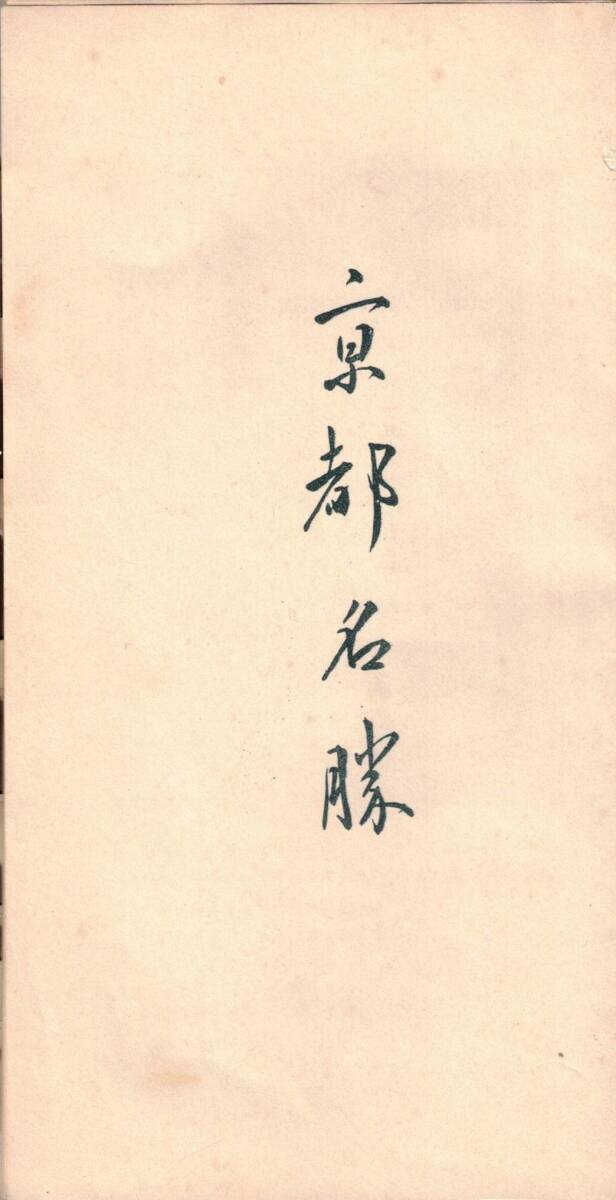 京都名勝